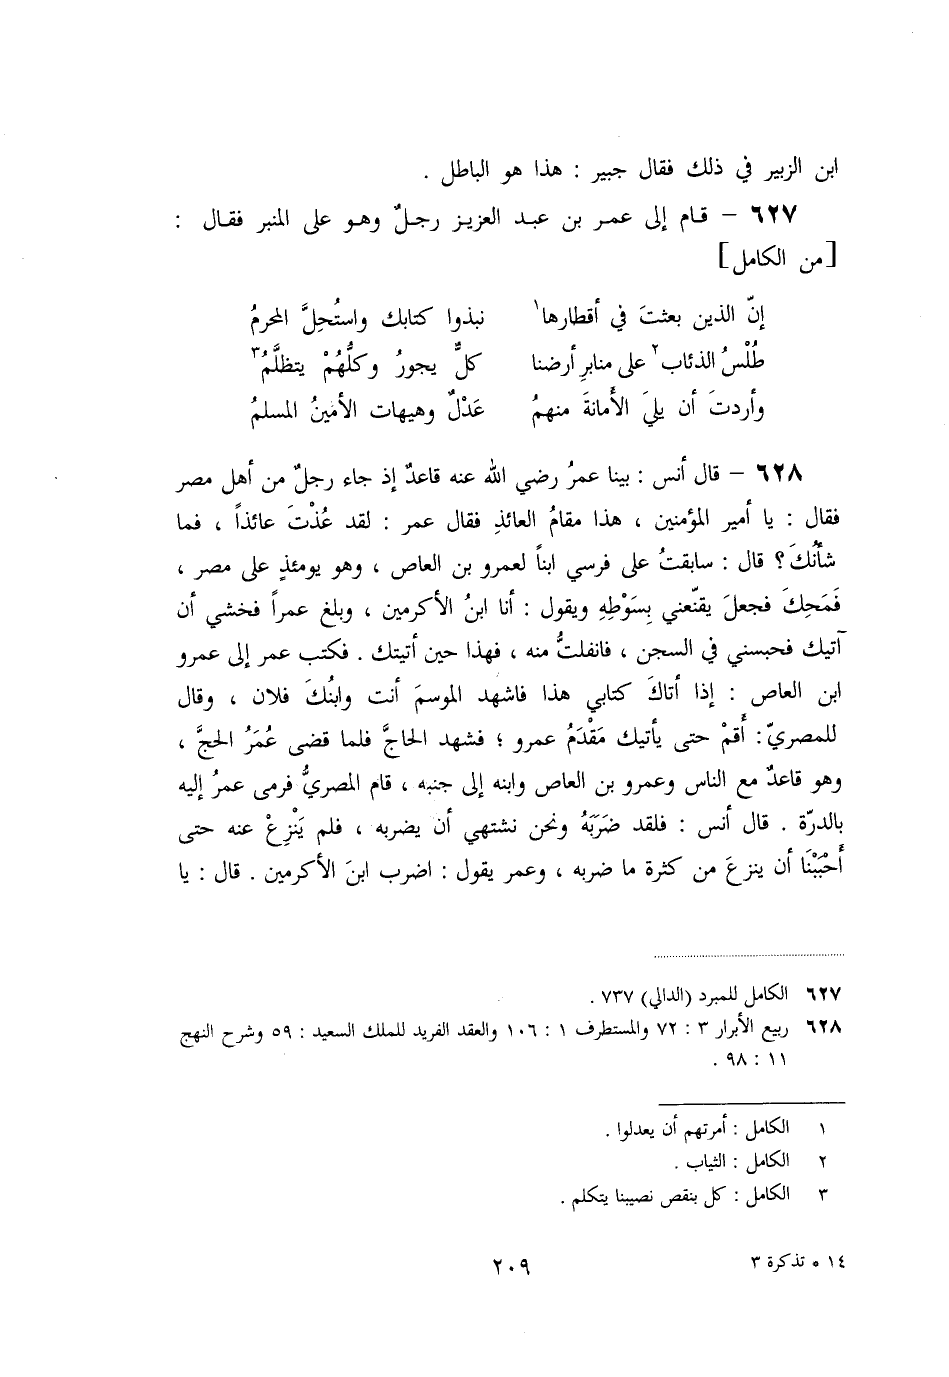 ابن الزبير في ذلك فقال جبير : هذا هو الباطل .
٦٢٧ – قام إلى عمر بن عبد العزيز رجلٌ وهو على المنبر فقال :
[من الكامل]
إنّ الذين بعثتَ في أقطارها١ نبذوا كتابك واستُحِلَّ المحرمُ
طُلْسُ الذئاب٢ على منابرِ أرضنا كلٌّ يجورُ وكلُّهُمْ يتظلَّمُ٣
وأردتَ أن يليَ الأمانةَ منهمُ عَدْلٌ وهيهات الأمينُ المسلمُ
٦٢٨ – قال أنس : بينا عمرُ رضي الله عنه قاعدٌ إذ جاء رجلٌ من أهل مصر
فقال : يا أمير المؤمنين ، هذا مقامُ العائذِ فقال عمر : لقد عُذْتَ عائذاً ، فما
شأنُكَ؟ قال : سابقتُ على فرسي ابناً لعمرو بن العاص ، وهو يومئذٍ على مصر ،
فَمَحِكَ فجعلَ يقنّعني بِسَوْطِهِ ويقول : أنا ابنُ الأكرمين ، وبلغ عمراً فخشي أن
آتيك فحبسني في السجن ، فانفلتُّ منه ، فهذا حين أتيتك . فكتب عمر إلى عمرو
ابن العاص : إذا أتاكَ كتابي هذا فاشهد الموسمَ أنت وابنُكَ فلان ، وقال
للمصريّ: أَقمْ حتى يأتيك مَقْدَمُ عمرو ؛ فشهد الحاجَّ فلما قضى عُمَرُ الحجَّ ،
وهو قاعدٌ مع الناس وعمرو بن العاص وابنه إلى جنبه ، قام المصريُّ فرمى عمرُ إليه
بالدرّة . قال أنس : فلقد ضَرَبَهُ ونحن نشتهي أن يضربه ، فلم يَنْزِعْ عنه حتى
أَحْبَبْنَا أن ينزعَ من كثرة ما ضربه ، وعمر يقول : اضرب ابنَ الأكرمين . قال : يا
٦٢٧ الكامل للمبرد (الدالي) ٧٣٧ .
٦٢٨ ربيع الأبرار ٣ : ٧٢ والمستطرف ١ : ١٠٦ والعقد الفريد للملك السعيد : ٥٩ وشرح النهج
١١ : ٩٨ .
١ الكامل : أمرتهم أن يعدلوا .
٢ الكامل : الثياب .
٣ الكامل : كل بنقص نصيبنا يتكلم .
١٤ * تذكرة ٣ ٢٠٩